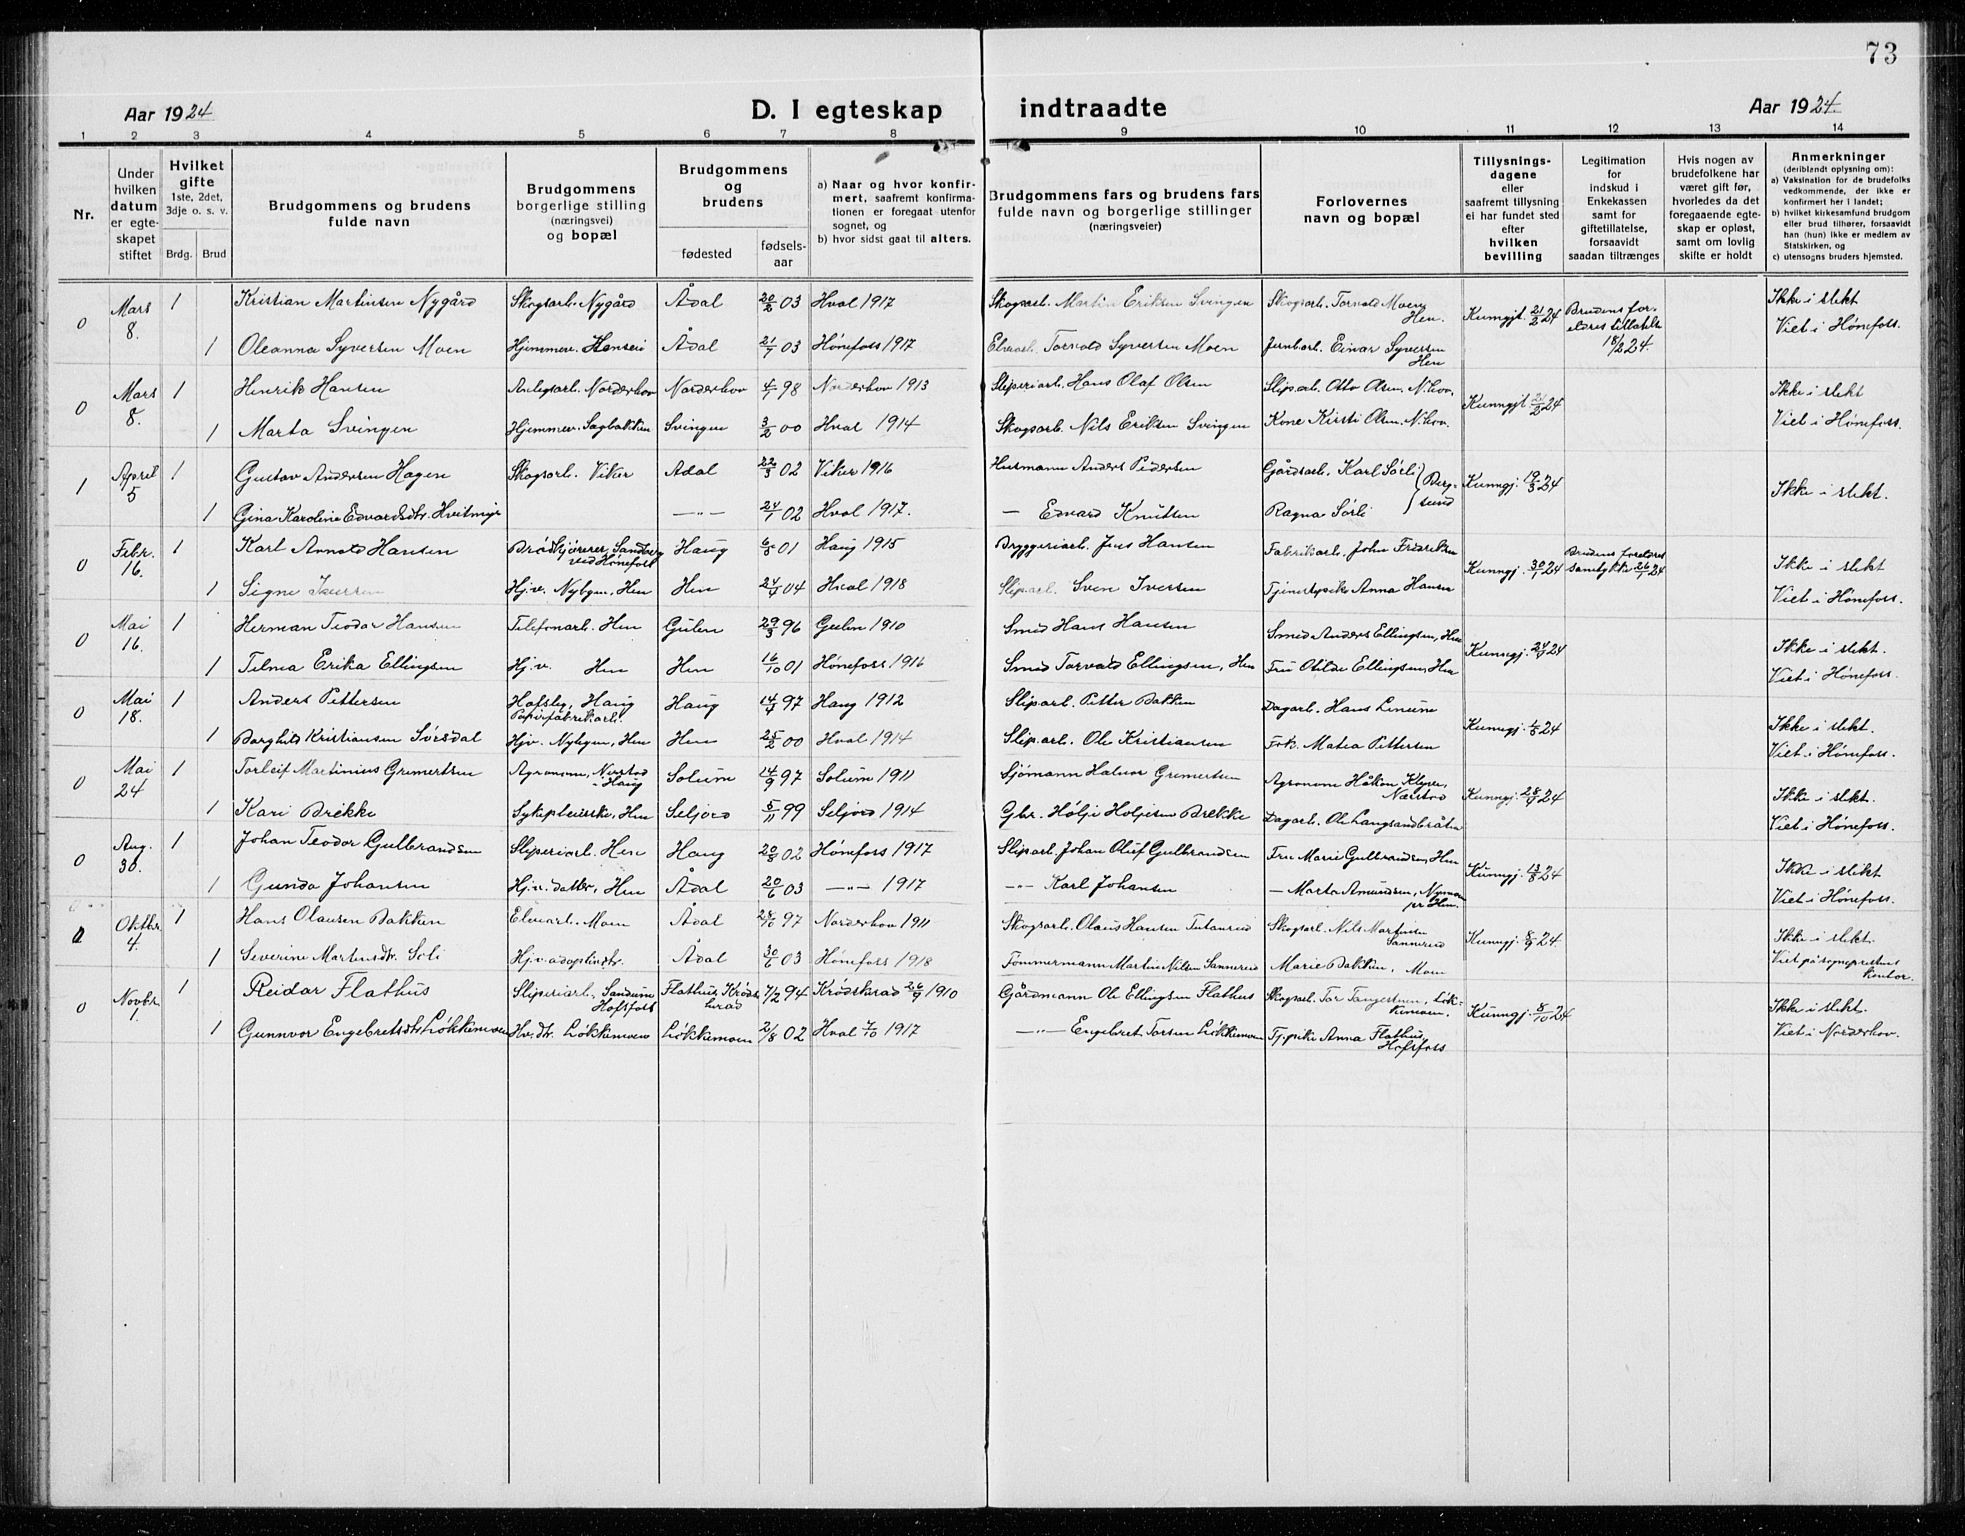 73
Aar 1924 D. I egteskap indtraadte Aar 1924.
1 2 3 4 5 6 7 8 9 10 11 12 13 14
Nr.
Under hvilken datum er egteskapet stiftet
Hvilket gifte 1ste, 2det, 3dje o. s. v.
Brdg. Brud
Brudgommens og brudens fulde navn
Brudgommens borgerlige stilling (næringsvei) og bopæl
Brudgommens og brudens
fødested fødselsaar
a) Naar og hvor konfirmert, saafremt konfirmationen er foregaat utenfor sognet, og
b) hvor sidst gaat til alters.
Brudgommens fars og brudens fars fulde navn og borgerlige stillinger (næringsveier)
Forlovernes navn og bopæl
Tillysningsdagene eller saafremt tillysning ei har fundet sted efter hvilken bevilling
Legitimation for indskud i Enkekassen samt for giftetillatelse, forsaavidt saadan tiltrænges
Hvis nogen av brudefolkene har været gift før, hvorledes da det foregaaende egteskap er opløst, samt om lovlig skifte er holdt
Anmerkninger (deriblandt oplysning om):
a) Vaksination for de brudefolks vedkommende, der ikke er konfirmert her i landet;
b) hvilket kirkesamfund brudgom eller brud tilhører, forsaavidt han (hun) ikke er medlem av Statskirken, og
c) utensogns bruders hjemsted.
0 Mars 8. 1 Kristian Martinsen Nygård Skogsarb. Nygård Ådal 20/2 03 Hval 1917 Skogsarb. Martin Eriksen Svingen Skogsarb. Torvald Moen, Hen. Kunngjt. 21/2 24 Brudens foreldres tillatelse 18/2 24. Ikke i slekt
1 Oleanna Syversen Moen Hjemmev. Hensei Ådal 21/7 03 Hønefoss 1917 Elvearb. Torvald Syversen Moen Jernbarb. Einar Syversen Hen Viet i Hønefoss.
0 Mars 8. 1 Henrik Hansen Anlegsarb. Norderhov Norderhov 4/7 98 Norderhov 1913 Sliperiarb. Hans Olaf Olsen Sliparb. Otto Olsen, N.hov. Kunngjt. 21/2 24 Ikke i slekt
1 Marta Svingen Hjemmev. Sagbakken Svingen 3/2 00 Hval 1914 Skogsarb. Nils Eriksen Svingen Kone Kirsti Olsen, N.hov. Viet i Hønefoss.
1 April 5 1 Gustav Andersen Hagen Skogsarb. Viker Adal 22/3 02 Viker 1916 Husmann Anders Pedersen Gårdsarb. Karl Sørli Bergsund Kunngj. 19/3 24 Ikke i slekt.
1 Gina Karoline Edvardsdtr. Hveitmyr —"— 24/1 02 Hval 1917. — Edvard Knutsen Ragna Sørli
0 Febr. 16. 1 Karl Arnold Hansen Brødkjører, Sandberg ved Hønefoss Haug 6/5 01 Haug 1915 Bryggeriarb. Jens Hansen Fabrikarb. John Fredriksen Kunngj. 30/1 24 Brudens foreldres samtykke 26/1 24 Ikke i slekt
1 Signe Iversen Hj.v. Nybyen, Hen Hen 24/4 04 Hval 1918 Sliparb. Sven Iversen Tjenestepike Anna Hansen Viet i Hønefoss.
0 Mai 16. 1 Herman Teodor Hansen Telefonarb. Hen Gulen 29/3 96 Gulen 1910 Smed Hans Hansen Smed Anders Ellingsen, Hen Kunngj. 24/4 24 Ikke i slekt.
1 Telma Erika Ellingsen Hj.v. Hen Hen 16/10 01 Hønefoss 1916 Smed Torvald Ellingsen, Hen Fru Otilde Ellingsen, Hen Viet i Hønefoss.
0 Mai 18. 1 Anders Pettersen Hofsby, Haug Papirfabrikarb. Haug 14/4 97 Haug 1912 Sliparb. Petter Bakken Dagarb. Hans Kunngj. 1/5 24 Ikke i slekt.
1 Borghild Kristiansen Sørsdal Hjv. Nybyen, Hen Hen 25/2 00 Hval 1914 Sliparb. Ole Kristiansen Frk. Matea Pettersen Viet i Hønefoss.
0 Mai 24 1 Torleif Martinius Gremertsen Agronom, Nærstad i Haug Solum 14/9 97 Solum 1911 Sjømann Halvor Gremertsen Agronom Håkon Kleven, Nærstad Kunngj. 28/4 24 Ikke i slekt.
1 Kari Brekke Sykepleierske, Hen Seljord 5/11 99 Seljord 1914 Gbr. Holje Holjesen Brekke Dagarb. Ole Langsandbråten Viet i Hønefoss.
0 Aug. 30. 1 Johan Teodor Gulbrandsen Sliperiarb. Hen Haug 20/8 02 Hønefoss 1917 Sliparb. Johan Oluf Gulbrandsen Fru Marie Gulbrandsen, Hen Kunngj. 13/8 24 Ikke i slekt
1 Gunda Johansen Hj.v. datter, Hen Ådal 20/6 03 —"— 1917 —"— Karl Johansen — Marta Amundsen, Nymoen pr Hen. Viet i Hønefoss.
1 Oktbr. 4. 1 Hans Olausen Bakken Elvearb. Moen Ådal 28/6 97 Norderhov 1911 Skogsarb. Olaus Hansen Tutanrud Skogsarb. Nils Martinsen Sannerud Kunngj. 8/9 24 Ikke i slekt.
1 Severine Martinsdtr. Soli Hj.v. adoptivdtr. Ådal 30/6 03 Hønefoss 1918 Tømmermann Martin Nilsen Sannerud Marie Bakken, Moen Viet på sogneprestens kontor.
0 Novbr. 1. 1 Reidar Flathus Sliperiarb., Sandum Hofsfoss Flathus, Krødsherad 7/2 94 Krødsherad 26/9 1910 Gårdmann Ole Ellingsen Flathus Skogsarb. Tor Tangestuen, Løkkemoen. Kunngj. 8/10 24 Ikke i slekt.
1 Gunnvor Engebretsdtr. Løkkemoen Hv. dtr. Løkkemoen Løkkemoen 2/8 02 Hval 7/10 1917 —"— Engebret Torsen Løkkemoen Tj.pike Anna Flathus, Hofsfoss Viet i Norderhov.